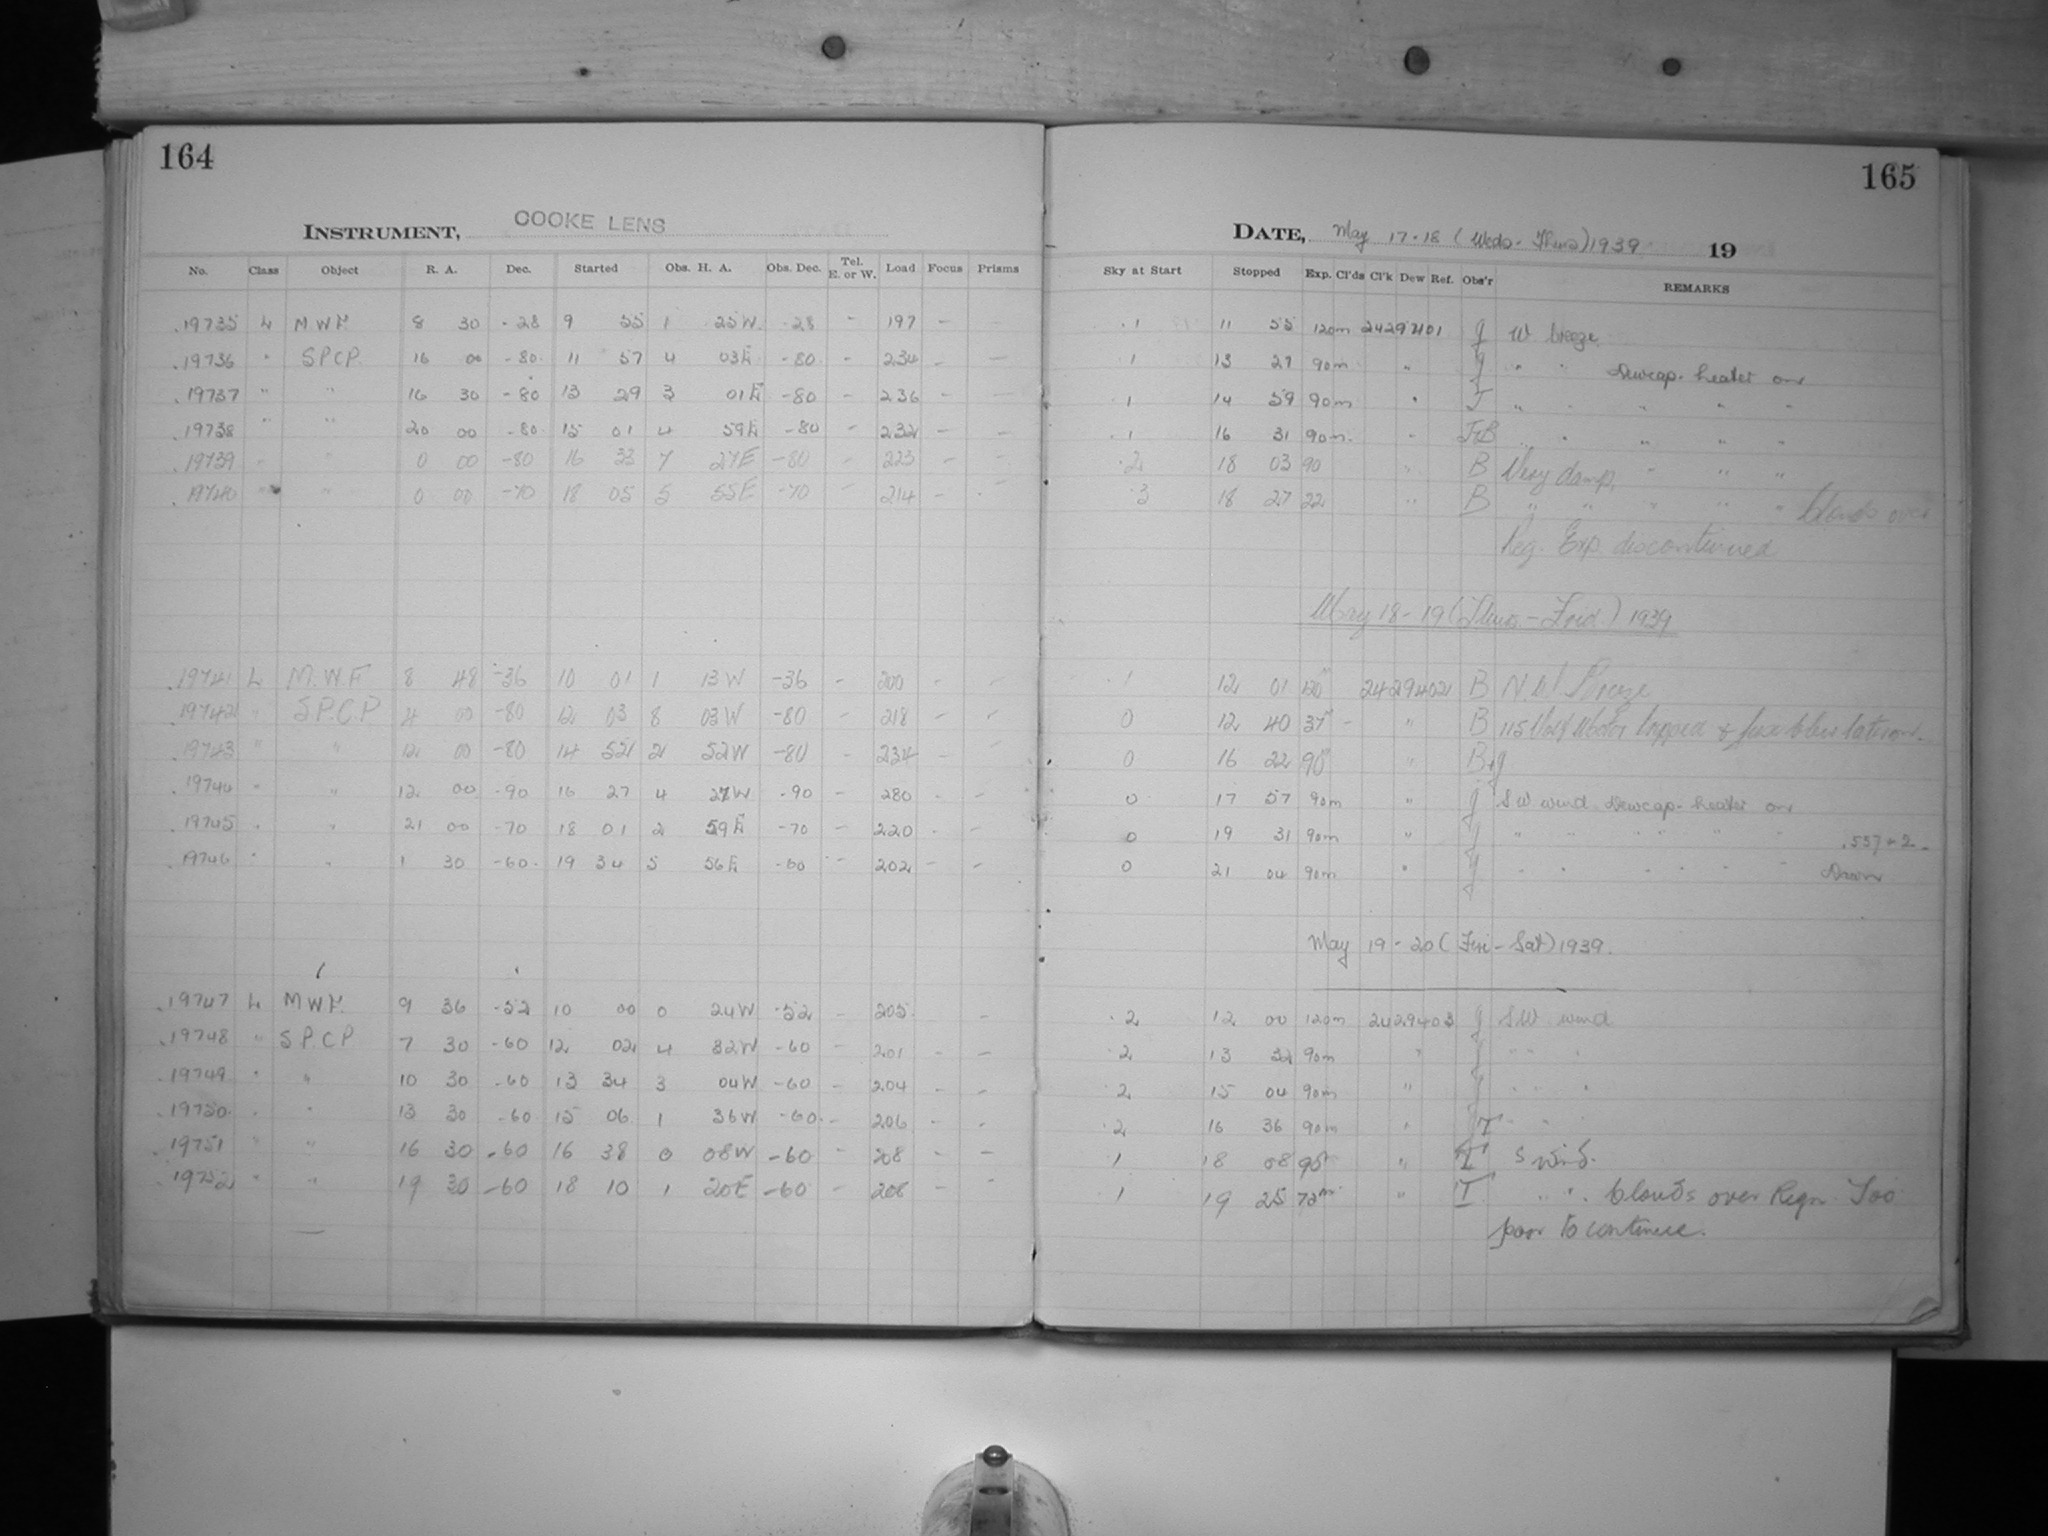 164
INSTRUMENT, COOKE LENS
No. Class Object R. A. Dec. Started Obs. H. A. Obs. Dec. Tel. E. or W. Load Focus Prisms
19735 L M W F 8 30 -28 9 55 1 25W -28 - 197 - -
19736 " S.P.C.P. 16 00 -80 11 57 4 03E -80 - 234 - -
19737 " " 16 30 -80 13 29 3 01E -80 - 236 - -
19738 " " 20 00 -80 15 01 4 59E -80 - 232 - -
19739 " " 0 00 -80 16 33 7 27E -80 - 223 - -
19740 " " 0 00 -70 18 05 5 55E -70 - 214 - -
19741 L M.W.F 8 48 -36 10 01 1 13W -36 - 200 - -
19742 " S.P.C.P 4 00 -80 12 03 8 03W -80 - 218 - -
19743 " " 12 00 -80 14 52 2 52W -80 - 234 - -
19744 " " 12 00 -90 16 27 4 27W -90 - 280 - -
19745 " " 21 00 -70 18 01 2 59E -70 - 220 - -
19746 " " 1 30 -60 19 34 5 56E -60 - 202 - -
19747 L M W F. 9 36 -52 10 00 0 24W -52 - 205 -
19748 " S P.C P 7 30 -60 12 02 4 32W -60 - 201 - -
19749 " " 10 30 -60 13 34 3 04W -60 - 204 - -
19750 " " 13 30 -60 15 06 1 36W -60 - 206 - -
19751 " " 16 30 -60 16 38 0 08W -60 - 208 - -
19752 " " 19 30 -60 18 10 1 20E -60 - 208 - -
165
DATE, May 17-18 (Weds-Thurs) 1939 19
Sky at Start Stopped Exp. Cl'ds Cl'k Dew Ref. Obs'r REMARKS
1 11 55 120m 2429401 J W breeze
1 13 27 90m " J " " Dewcap heater on
1 14 59 90m " J " " " " "
1 16 31 90m " J+B " " " " "
2 18 03 90 " B Very damp, " " "
3 18 27 22 " B " " " " " Clouds over
Reg. Exp discontinued
May 18-19 (Thurs-Frid.) 1939
1 12 01 120m 2429402 B N.W. Breeze
0 12 40 37m - " B 115 Volt Motor tripped & fuse blew
0 16 22 90m " B+J
0 17 57 90m " J SW wind Dewcap heater on
0 19 31 90m " J " " " " " " .557+2
0 21 04 90m " J " " " " " " Dawn
May 19-20 (Fri-Sat) 1939.
2 12 00 120m 2429403 J S.W. wind
2 13 32 90m " J " "
2 15 04 90m " J " "
2 16 36 90m " " "
1 18 08 90m " T S wind.
1 19 25 73m " T " " Clouds over Regn Too
poor to continue.